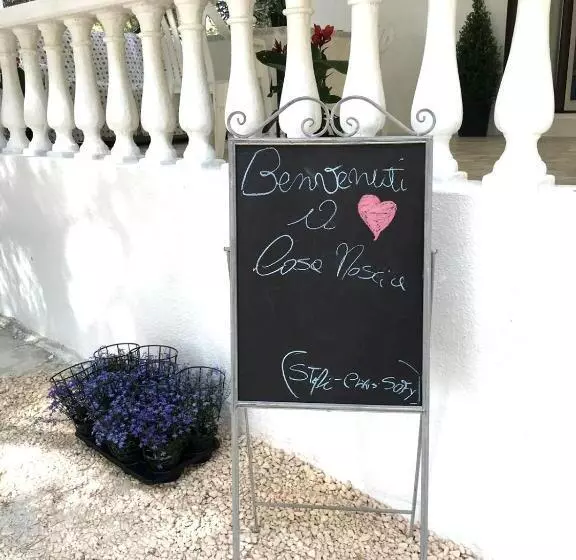 Benvenuti
a
Casa
(STefi-Chris-Sofy)